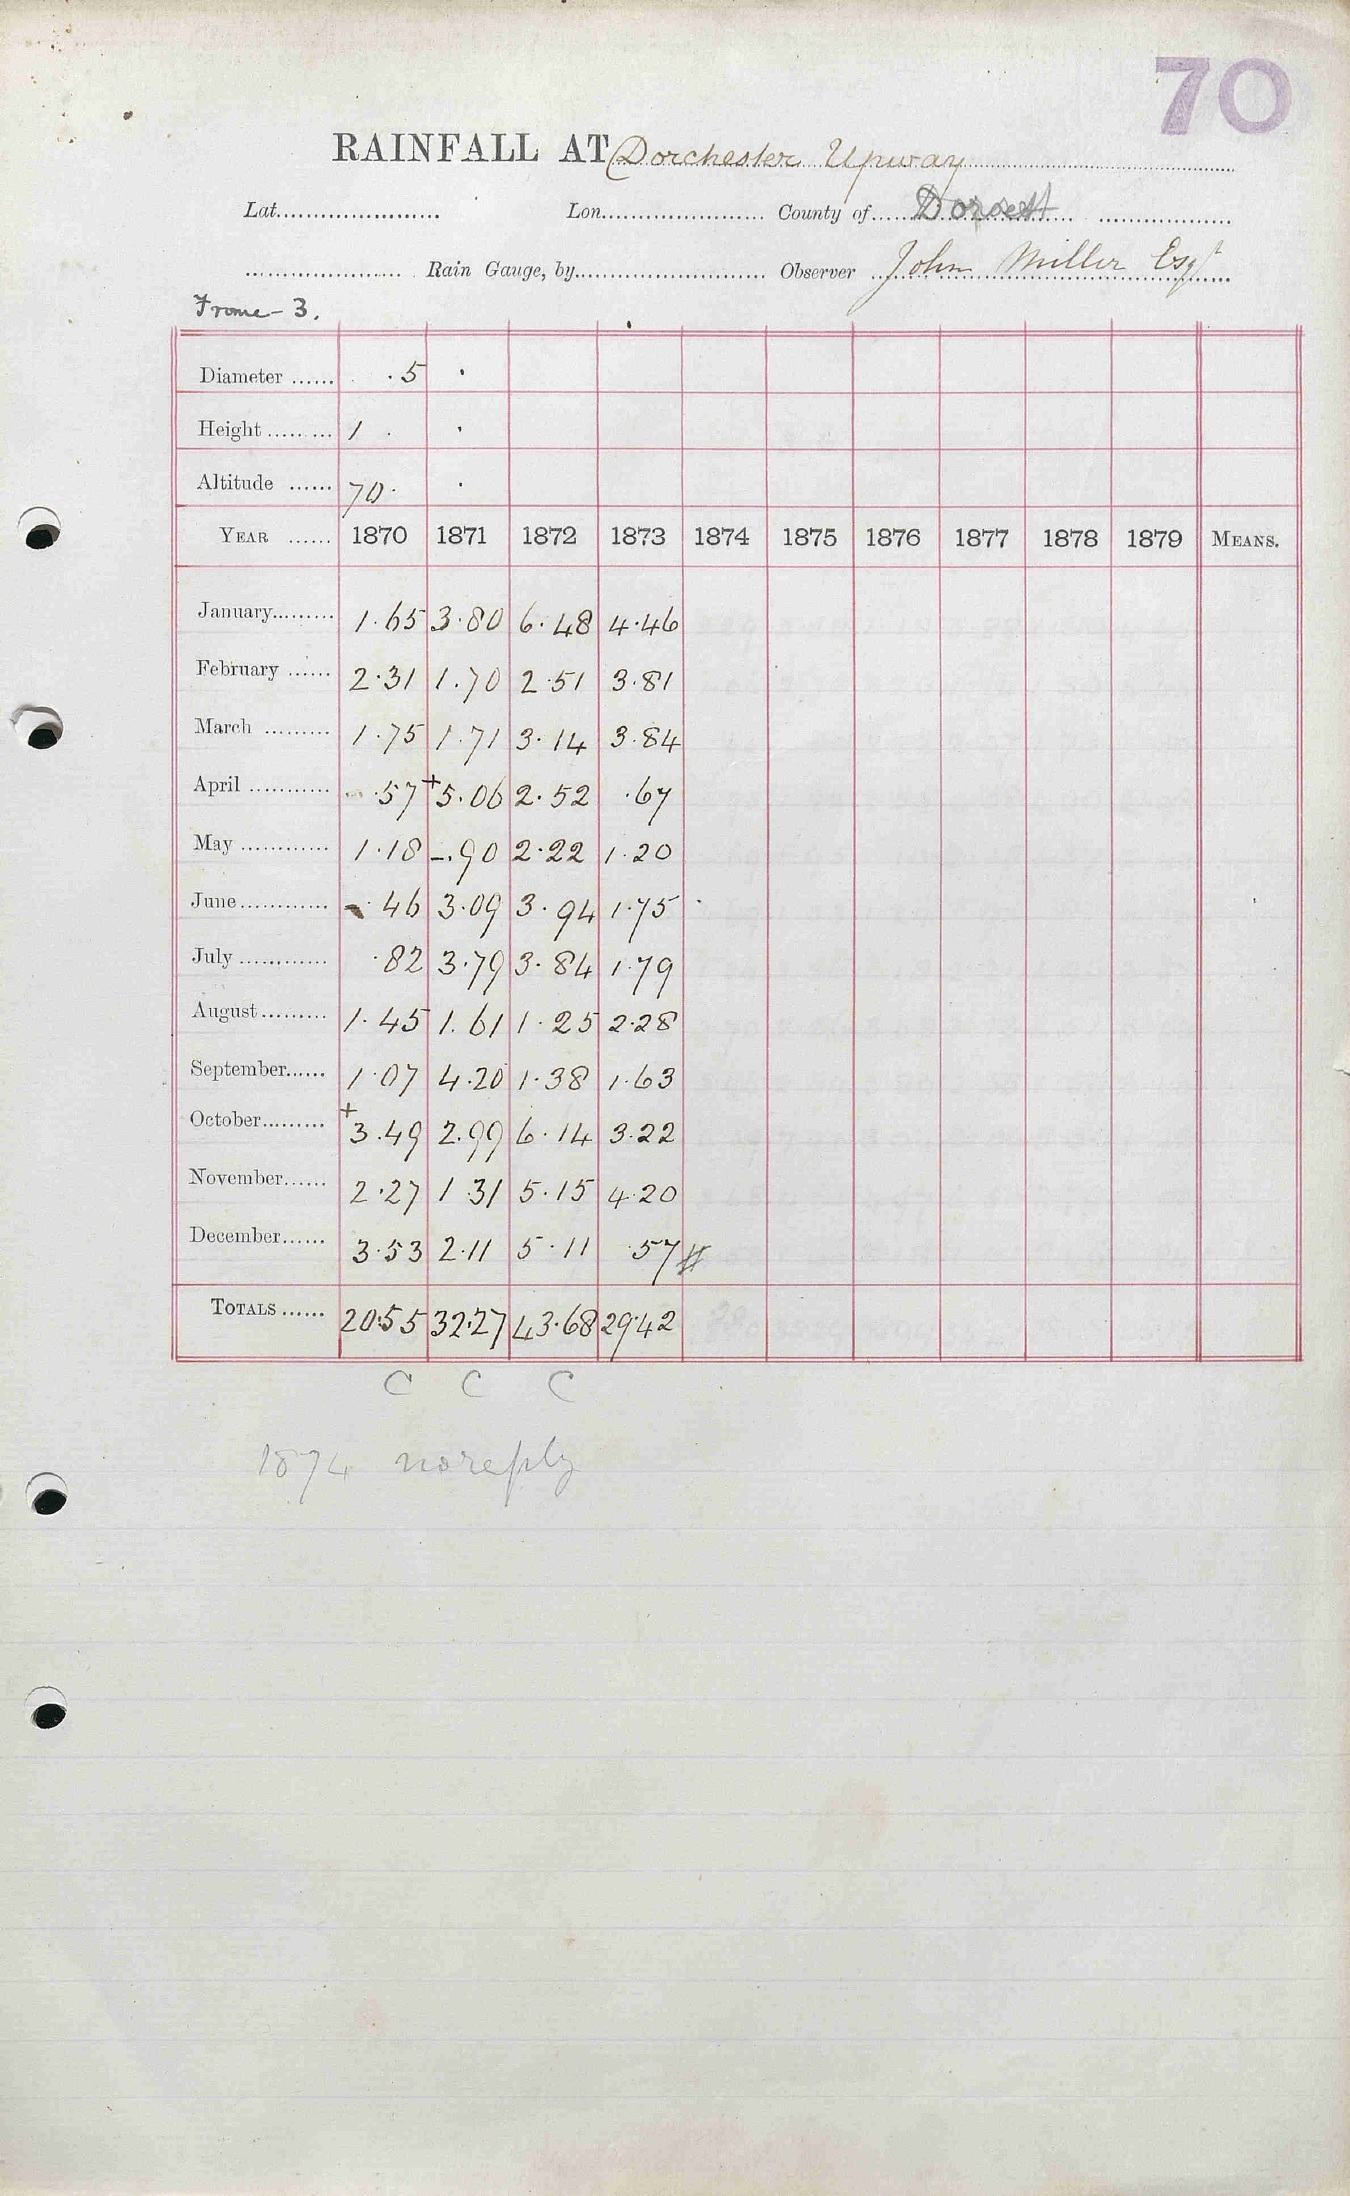 70
RAINFALL AT Dorchester Upway
Lat. Lon. County of Dorset
Rain Gauge, by Observer John Miller Esqr
Frome - 3.
Diameter ...... .5 .
Height ......... 1 . .
Altitude ...... 70. .
YEAR ...... 1870 1871 1872 1873 1874 1875 1876 1877 1878 1879 MEANS.
January......... 1.65 3.80 6.48 4.46
February ...... 2.31 1.70 2.51 3.81
March ......... 1.75 1.71 3.14 3.84
April ........... .57 +5.06 2.52 .67
May ............ 1.18 -.90 2.22 1.20
June............ .46 3.09 3.94 1.75
July ............ .82 3.79 3.84 1.79
August......... 1.45 1.61 1.25 2.28
September...... 1.07 4.20 1.38 1.63
October......... +3.49 2.99 6.14 3.22
November...... 2.27 1.31 5.15 4.20
December...... 3.53 2.11 5.11 .57 #
TOTALS ...... 20.55 32.27 43.68 29.42
C C C
1874 no reply